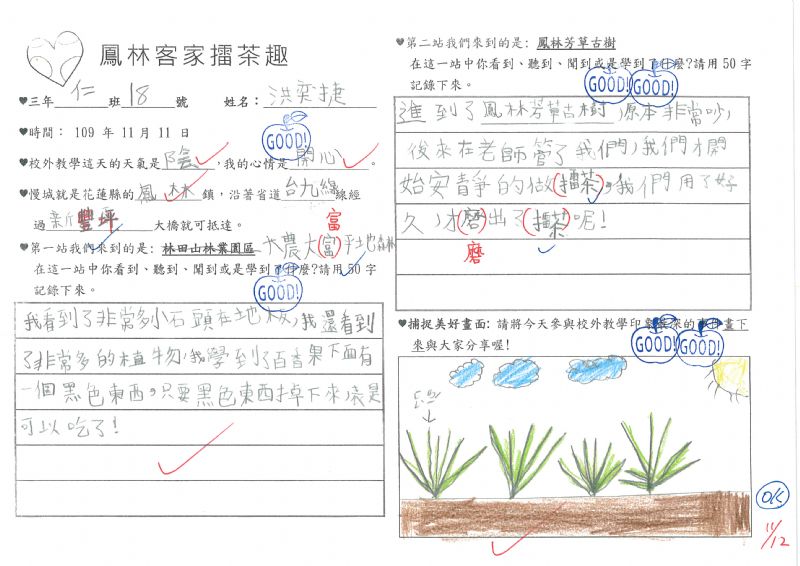 鳳林客家擂茶趣
♥三年仁班18號 姓名：洪奕捷
♥時間： 109 年 11 月 11 日
GOOD!
♥校外教學這天的天氣是陰，我的心情是開心。
♥慢城就是花蓮縣的鳳林鎮，沿著省道台九線線經
過新豐坪大橋就可抵達。
富
♥第一站我們來到的是：林田山林業園區 大農大(富)平地森林
在這一站中你看到、聽到、聞到或是學到了什麼?請用 50 字
記錄下來。
GOOD!
我看到了非常多小石頭在地板，我還看到
了非常多的植物，我學到了百香果下面有
一個黑色東西，只要黑色東西掉下來，就是
可以吃了！
♥第二站我們來到的是：鳳林芳草古樹
在這一站中你看到、聽到、聞到或是學到了什麼?請用 50 字
記錄下來。
GOOD! GOOD!
進到了鳳林芳草古樹，原本非常吵，
後來在老師管了我們，我們才開
始安靜的做(擂茶)，我們用了好
久，才(磨)出了(擂茶)呢！
磨
♥捕捉美好畫面：請將今天參與校外教學印象最深的事件畫下
來與大家分享喔！
GOOD! GOOD!
OK
11/12